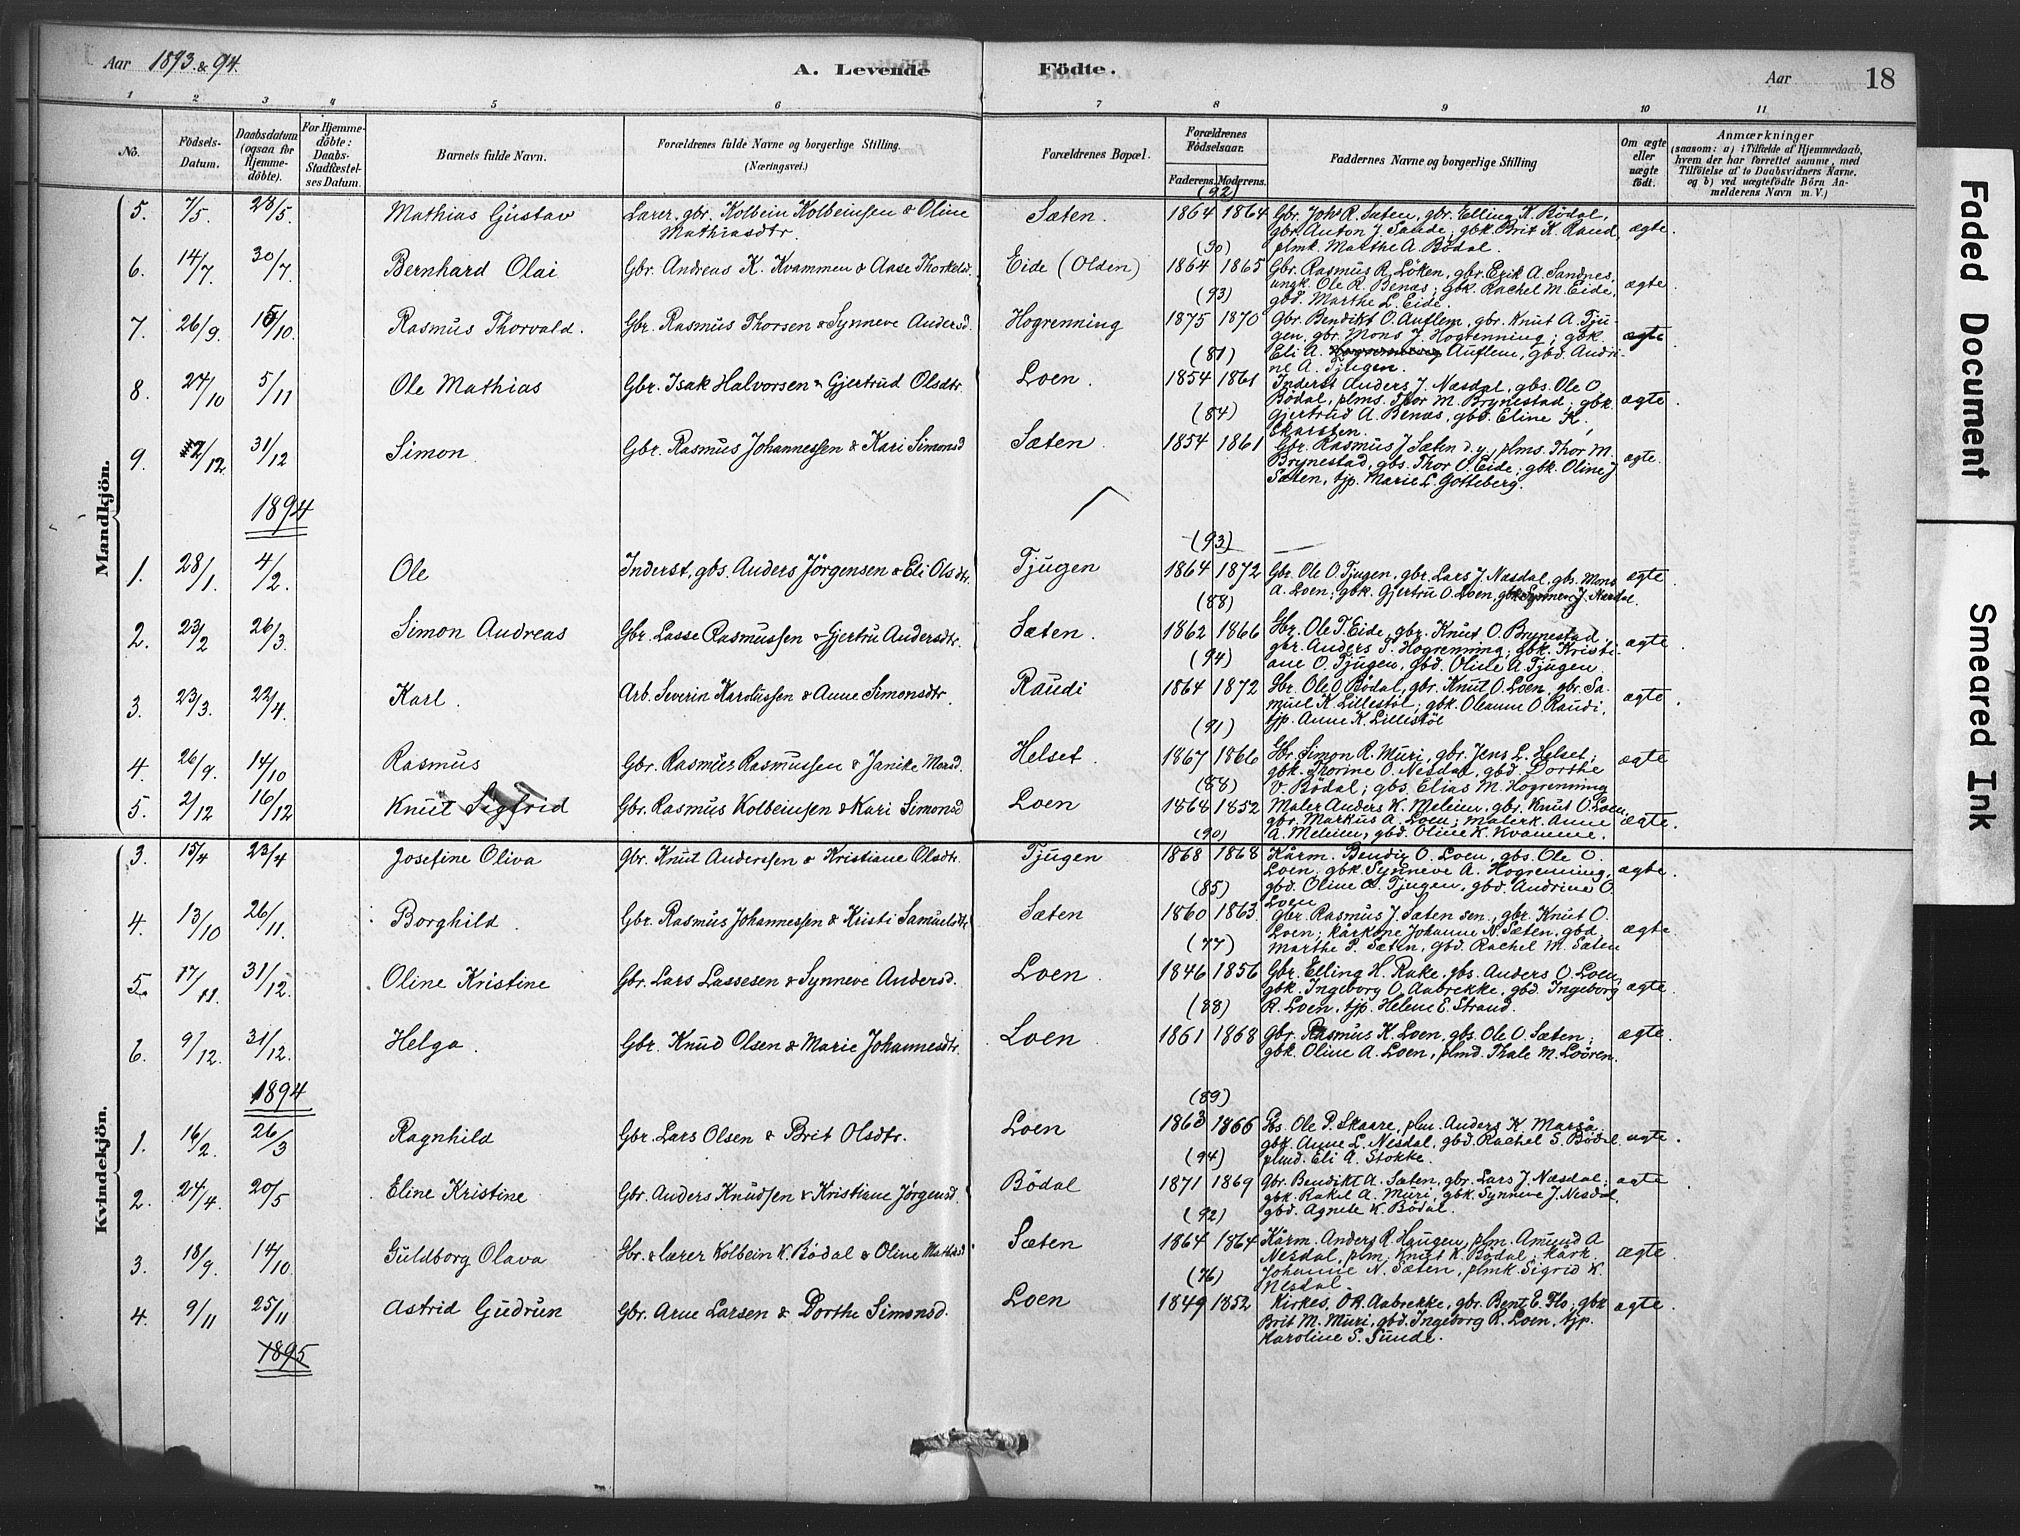 Aar 1893 & 94. A. Levende Födte. Aar 18
1 2 3 4 5 6 7 8 9 10 11
No. Födsels-Datum. Daabsdatum (ogsaa för Hjemme-döbte). For Hjemme-döbte: Daabs-Stadfæstel-ses Datum. Barnets fulde Navn. Forældrenes fulde Navne og borgerlige Stilling. (Næringsvei.) Forældrenes Bopæl. Forældrenes Födselsaar. Faderens. Moderens. Faddernes Navne og borgerlige Stilling Om ægte eller uægte födt. Anmærkninger
(saasom: a) i Tilfælde af Hjemmedaab, hvem der har forrettet samme, med Tilföielse af to Daabsvidners Navne. og b) ved uægtefödte Börn An-melderens Navn m.V.)
Mandkjön.
(92)
5. 7/5. 28/5. Mathias Gustav Lærer, gbr. Kolbein Kolbeinsen & Oline Sæten. 1864 1864 Gbr. Joh. R. Sæten, gbr. Elling K. Bödal, ægte.
Mathiasdtr. gbr. Anton J. Sande; gbk. Brit K. Raud,
(90) plmk. Marthe A. Bödal.
6. 14/7. 30/7. Bernhard Olai Gbr. Andreas K. Kvammen & Aase Thorkelsd. Eide (Olden) 1864 1865 Gbr. Rasmus R. Löken, gbr. Erik A. Sandnes, ægte.
ungk. Ole R. Benæs; gbk. Rachel M. Eide,
(93) gbd. Marthe L. Eide.
7. 26/9. 15/10. Rasmus Thorvald. Gbr. Rasmus Thorsen & Synneve Andersd. Hogrenning 1875 1870 Gbr. Bendikt O. Auflem, gbr. Knut A. Tju- ægte
gen, gbr. Mons J. Hogrenning; gbk.
(81) Eli A. Auflem, gbd. Andri-
ne A. Tjugen.
8. 24/10 5/11 Ole Mathias Gbr. Isak Halvorsen & Gjertrud Olsdtr. Loen. 1854 1861 Inderst Anders J. Næsdal, gbs. Ole O. ægte.
Bödal, plms. Thor M. Brynestad; gbk.
(84) Gjertrud A. Benæs, gbd. Eline K.
9. 2/12. 31/12 Simon Gbr. Rasmus Johannessen & Kari Simonsd Sæten. 1854 1861 Gbr. Rasmus J. Sæten d.y., plms. Thor M. ægte.
Brynestad, gbs. Thor O. Eide; gbk. Oline J.
Sæten, tjp. Marie L. Gotteberg.
1894
(93)
1. 28/1. 4/2. Ole Inderst, gbs. Anders Jörgensen & Eli Olsdtr. Tjugen 1864 1872 Gbr. Ole O. Tjugen, gbr. Lars J. Næsdal, gbs. Mons ægte
(88) A. Loen; gbk. Gjertru O. Loen, gbk. Synnev J. Næsdal.
2. 23/2 26/3. Simon Andreas Gbr. Lasse Rasmussen & Gjertru Andersdtr. Sæten. 1862 1866 Gbr. Ole T. Eide, gbr. Knut O. Brynestad, ægte.
gbr. Anders T. Hogrenning; gbk. Kristi-
(94) ane O. Tjugen, gbd. Oline A. Tjugen
3. 23/3. 22/4. Karl. Arb. Severin Karolussen & Anne Simonsdtr. Raudi 1864 1872 Gbr. Ole O. Bödal, gbr. Knut O. Loen, gbr. Sa- ægte.
muel K. Lillestöl; gbk. Oleanne O. Raudi,
(91) tjp. Anne K. Lillestöl
4. 26/9. 14/10 Rasmus Gbr. Rasmus Rasmussen & Janike Monsd. Helset. 1867 1866 Gbr. Simon R. Muri, gbr. Jens L. Helset; ægte
gbk. Thorine O. Nesdal, gbd. Dorthe
(88) V. Bödal; gbs. Elias M. Hogrenning
5. 2/12 16/12 Knut Sigfrid Gbr. Rasmus Kolbeinsen & Kari Simonsd Loen 1868 1852 Maler Anders K. Meleim, gbr. Knut O. Loen, ægte.
gbr. Markus A. Loen; malerk. Anne
(90) A. Meleim, gbd. Oline K. Kvamme.
Kvindekjön.
3. 15/4 23/4 Josefine Oliva Gbr. Knut Anderssen & Kristiane Olsdtr. Tjugen 1868 1868 Kårm. Bendix O. Loen, gbs. Ole O. ægte.
Loen, gbk. Synneve A. Hogrenning,
(85) gbd. Oline A. Tjugen, gbd. Andrine O.
Loen
4. 13/10 26/11. Borghild Gbr. Rasmus Johannessen & Kristi Samuelsdtr Sæten 1860 1863 gbr. Rasmus J. Sæten sen., gbr. Knut O. ægte
Loen; kårkone Johanne N. Sæten, gbd.
(77) Marthe P. Sæten, gbd. Rachel M. Sæten
5. 17/11. 31/12. Oline Kristine Gbr. Lars Lassesen & Synneve Andersd. Loen. 1846 1856 Gbr. Elling H. Rake, gbs. Anders O. Loen, ægte.
gbk. Ingeborg O. Aabrekke, gbd. Ingeborg
(88) R. Loen, tjp. Helene E. Strand.
6. 9/12. 31/12. Helga. Gbr. Knud Olsen & Marie Johannesdtr. Loen 1861 1868 Gbr. Rasmus K. Loen, gbs. Ole O. Sæten; ægte.
gbk. Oline A. Loen, plmd. Thale M. Loören.
1894
(89)
1. 16/2. 26/3 Ragnhild Gbr. Lars Olsen & Brit Olsdtr. Loen 1863 1866 Gbs. Ole P. Skaare, plm. Anders K. Marså; ægte.
gbk. Anne L. Nesdal, gbd. Rachel S. Bödal,
(94) plmd. Eli A. Stokke.
2. 24/4. 20/5 Eline Kristine Gbr. Anders Knudsen & Kristiane Jörgensd. Bödal 1871 1869 Gbr. Bendikt A. Sæten, gbr. Lars J. Næsdal; ægte
gbk. Rakel A. Muri, gbk. Synneve J. Nesdal,
(92) gbd. Agnete K. Bödal.
3. 18/9. 14/10. Guldborg Olava Gbr. & lærer Kolbein K. Bödal & Oline Mathiasd Sæten 1864 1864 Kårm. Anders R. Haugen, plm. Amund A ægte.
Nesdal, plm. Knut K. Bödal; kårk.
(76) Johanne N. Sæten, plmk Sigrid K.
Nesdal.
4. 9/11 25/11 Astrid Gudrun Gbr. Arne Larsen & Dorthe Simonsd. Loen 1849 1852 Kirkes. O.R. Aabrekke, gbr. Bent E. Flo; gbk ægte.
Brit M. Muri, gbd. Ingeborg R. Loen, tjp.
Karoline S. Sunde.
1895
Faded Document
Smeared Ink